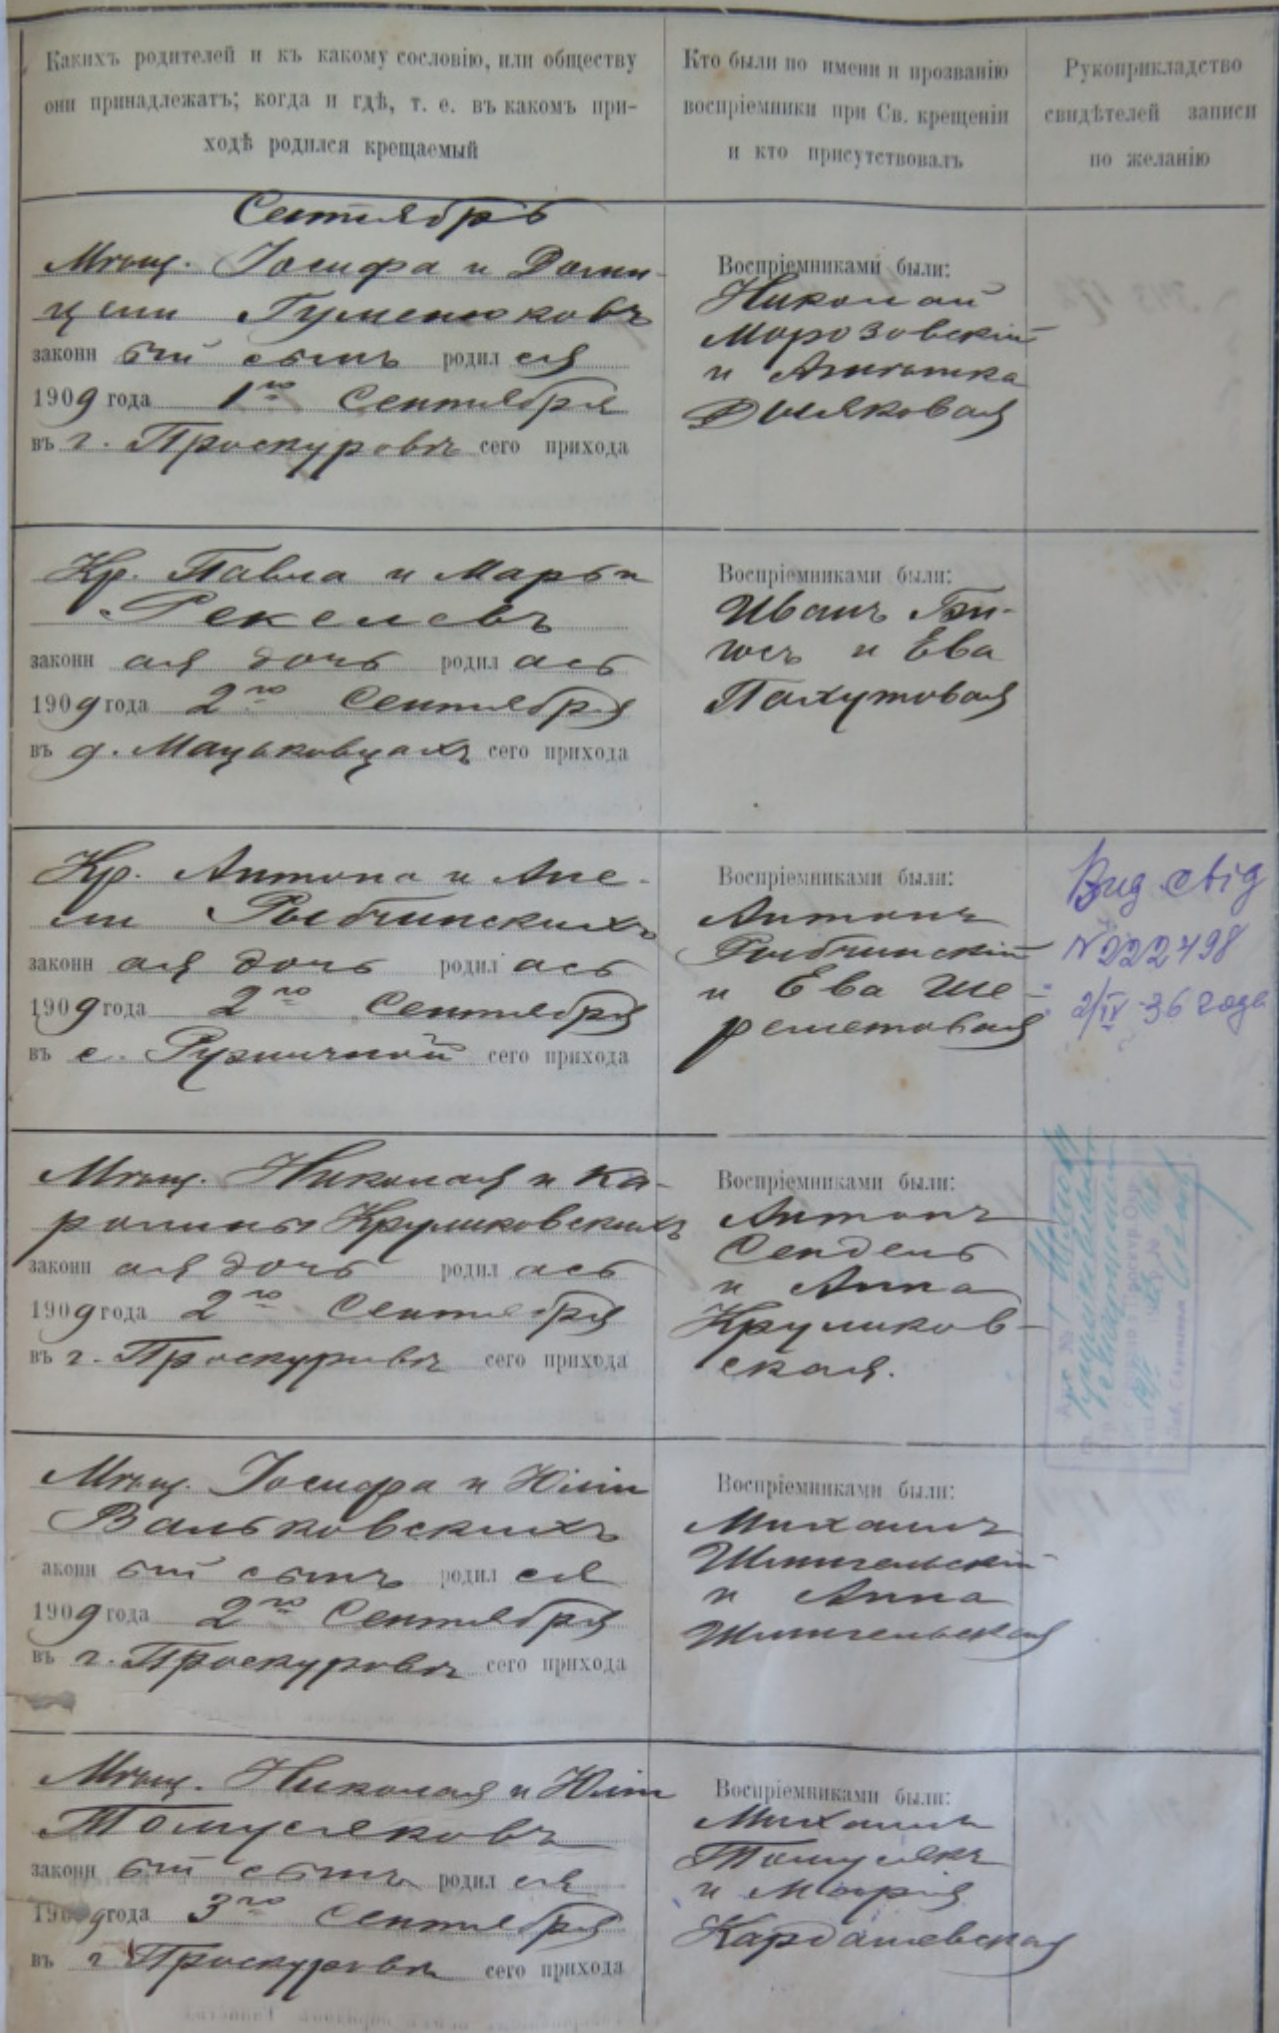 Какихъ родителей и къ какому сословію, или обществу
они принадлежатъ; когда и гдѣ, т. е. въ какомъ при-
ходѣ родился крещаемый
Кто были по имени и прозванію
воспріемники при Св. крещеніи
и кто присутствовалъ
Рукоприкладство
свидѣтелей записи
по желанію
Сентябрь
Мѣщ. Іосифа и Доми-
цели Гуменюковъ
законн ый сынъ родил ся
1909 года 1го Сентября
въ г. Проскуровѣ сего прихода
Воспріемниками были:
Николай
Морозовскій
и Антонина
Дьяковая
Кр. Павла и Марьи
Рекелевъ
законн ая дочь родил ась
1909 года 2го Сентября
въ д. Мацьковцахъ сего прихода
Воспріемниками были:
Иванъ
и Ева
Пахутовая
Кр. Антона и Ане-
ли Рыбчинскихъ
законн ая дочь родил ась
1909 года 2го Сентября
въ с. Ружичной сего прихода
Воспріемниками были:
Антонъ
Рыбчинскій
и Ева Ше-
реметовая
Вид. свід
№ 222498
2/IV-36 года
Мѣщ. Николая и Ка-
ролины Круликовскихъ
законн ая дочь родил ась
1909 года 2го Сентября
въ г. Проскуровѣ сего прихода
Воспріемниками были:
Антонъ
Сендень
и Анна
Круликов-
ская.
Мѣщ. Іосифа и Юліи
Вальковскихъ
аконн ый сынъ родил ся
1909 года 2го Сентября
въ г. Проскуровѣ сего прихода
Воспріемниками были:
Михаилъ
Шпигельскій
и Анна
Шпигельская
Мѣщ. Николая и Юліи
Томусяковъ
законн ый сынъ родил ся
1909 года 3го Сентября
въ г. Проскуровѣ сего прихода
Воспріемниками были:
Михаилъ
Томусякъ
и Марія
Кардашевская